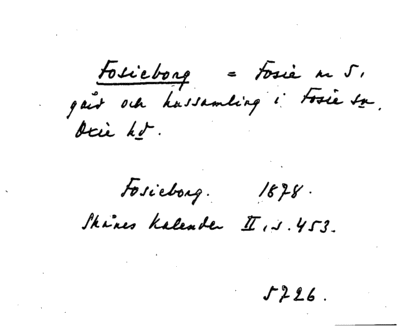 Fosieborg = Fosie nr 5,
gård och hussamling i Fosie sn,
Oxie hd.
Fosieborg. 1878.
Skånes Kalender II, s. 453.
5726.